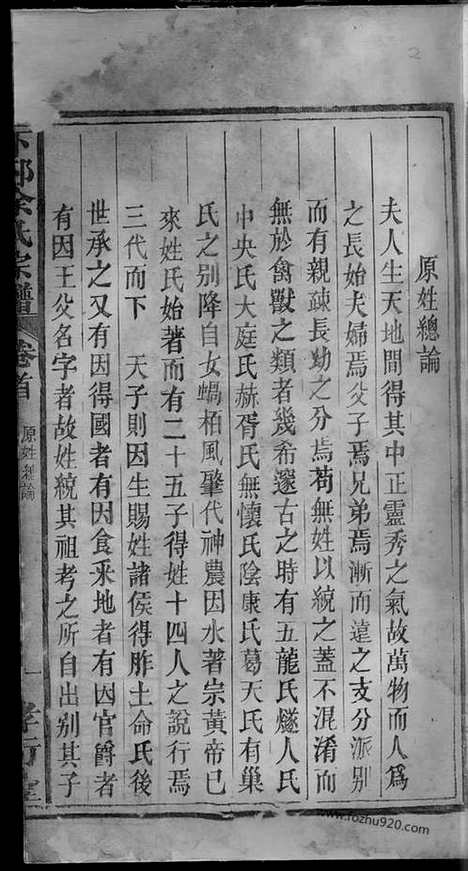 原姓總論
夫人生天地間得其中正靈秀之氣故萬物而人爲
之長始夫婦焉父子焉兄弟焉漸而遠之支分派別
而有親疎長幼之分焉苟無姓以統之蓋不混淆而
無於禽獸之類者幾希邃古之時有五龍氏燧人氏
中央氏大庭氏赫胥氏無懷氏陰康氏葛天氏有巢
氏之别降自女蝸栢風肇代神農因水著宗黃帝已
來姓氏始著而有二十五子得姓十四人之說行焉
三代而下 天子則因生賜姓諸侯得胙土命氏後
世承之又有因得國者有因食采地者有因官爵者
有因王父名字者故姓統其祖考之所自出別其子
下邳余氏宗譜 卷首 原姓總論 一
www.fozhu920.com
2